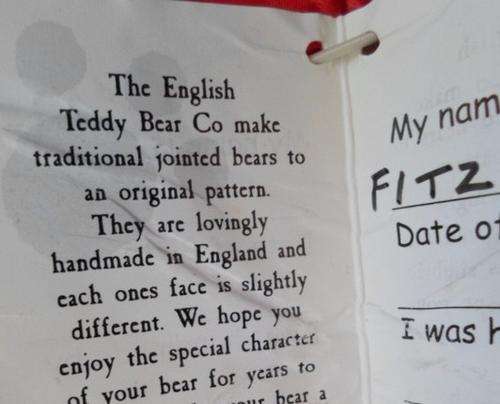 The English
Teddy Bear Co make
traditional jointed bears to
an original pattern.
They are lovingly
handmade in England and
each ones face is slightly
different. We hope you
enjoy the special character
of your bear for years to
bear a
My nam
FITZ
Date of
I was h